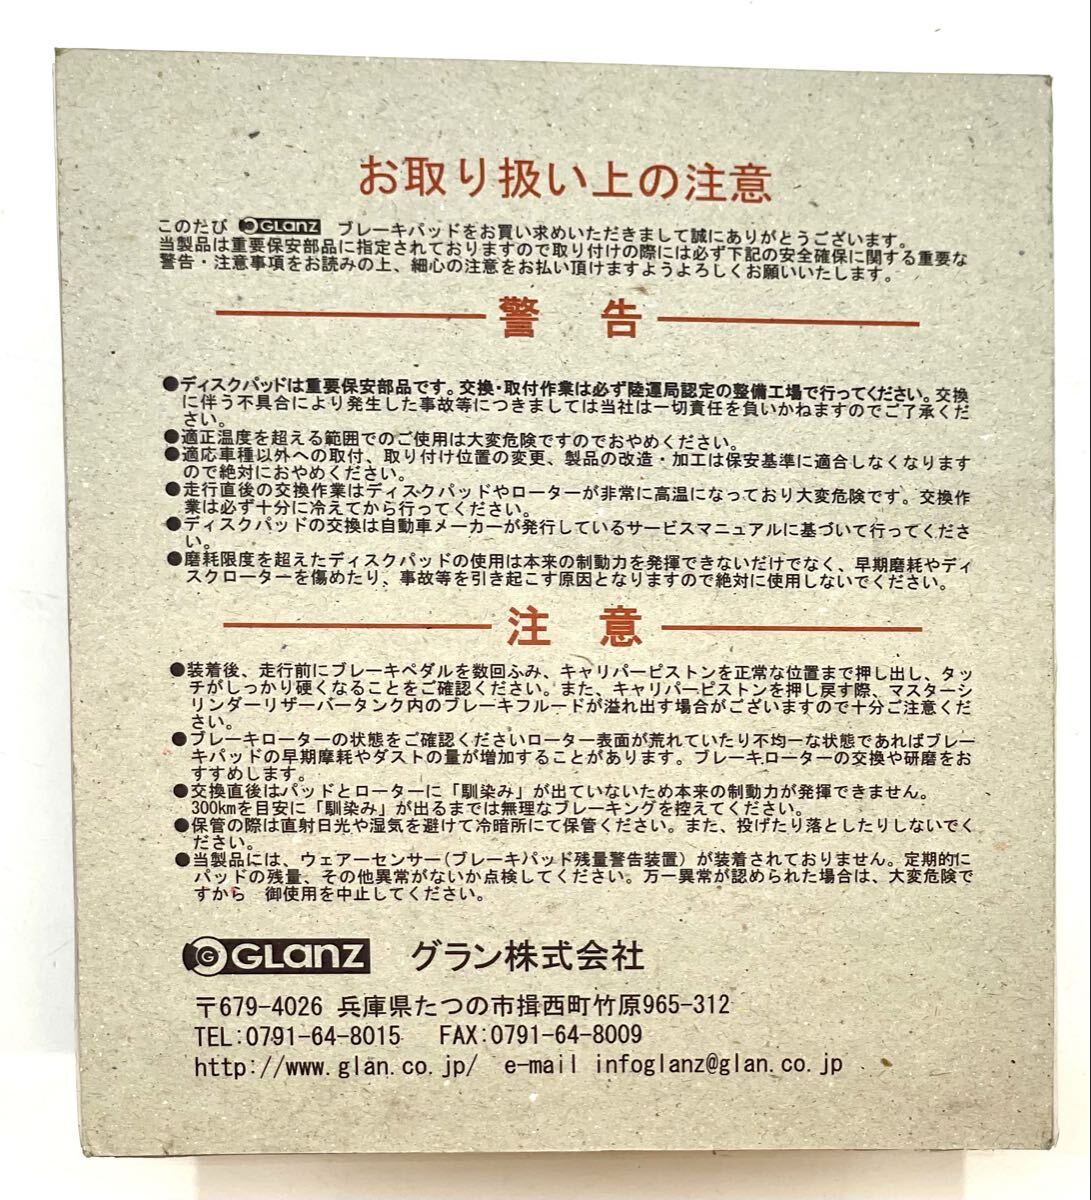 お取り扱い上の注意
このたび GLanz ブレーキパッドをお買い求めいただきまして誠にありがとうございます。
当製品は重要保安部品に指定されておりますので取り付けの際には必ず下記の安全確保に関する重要な
警告・注意事項をお読みの上、細心の注意をお払い頂けますようよろしくお願いいたします。
警 告
●ディスクパッドは重要保安部品です。交換・取付作業は必ず陸運局認定の整備工場で行ってください。交換
に伴う不具合により発生した事故等につきましては当社は一切責任を負いかねますのでご了承くだ
さい。
●適正温度を超える範囲でのご使用は大変危険ですのでおやめください。
●適応車種以外への取付、取り付け位置の変更、製品の改造・加工は保安基準に適合しなくなります
ので絶対におやめください。
●走行直後の交換作業はディスクパッドやローターが非常に高温になっており大変危険です。交換作
業は必ず十分に冷えてから行ってください。
●ディスクパッドの交換は自動車メーカーが発行しているサービスマニュアルに基づいて行ってくださ
い。
●磨耗限度を超えたディスクパッドの使用は本来の制動力を発揮できないだけでなく、早期磨耗やディ
スクローターを傷めたり、事故等を引き起こす原因となりますので絶対に使用しないでください。
注 意
●装着後、走行前にブレーキペダルを数回ふみ、キャリパーピストンを正常な位置まで押し出し、タッ
チがしっかり硬くなることをご確認ください。また、キャリパーピストンを押し戻す際、マスターシ
リンダーリザーバータンク内のブレーキフルードが溢れ出す場合がございますので十分ご注意くだ
さい。
●ブレーキローターの状態をご確認くださいローター表面が荒れていたり不均一な状態であればブレー
キパッドの早期摩耗やダストの量が増加することがあります。ブレーキローターの交換や研磨をお
すすめします。
●交換直後はパッドとローターに「馴染み」が出ていないため本来の制動力が発揮できません。
300kmを目安に「馴染み」が出るまでは無理なブレーキングを控えてください。
●保管の際は直射日光や湿気を避けて冷暗所にて保管ください。また、投げたり落としたりしないでく
ださい。
●当製品には、ウェアーセンサー(ブレーキパッド残量警告装置)が装着されておりません。定期的に
パッドの残量、その他異常がないか点検してください。万一異常が認められた場合は、大変危険で
すから 御使用を中止してください。
G GLanz グラン株式会社
〒679-4026 兵庫県たつの市揖西町竹原965-312
TEL:0791-64-8015 FAX:0791-64-8009
http://www.glan.co.jp/ e-mail infoglanz@glan.co.jp